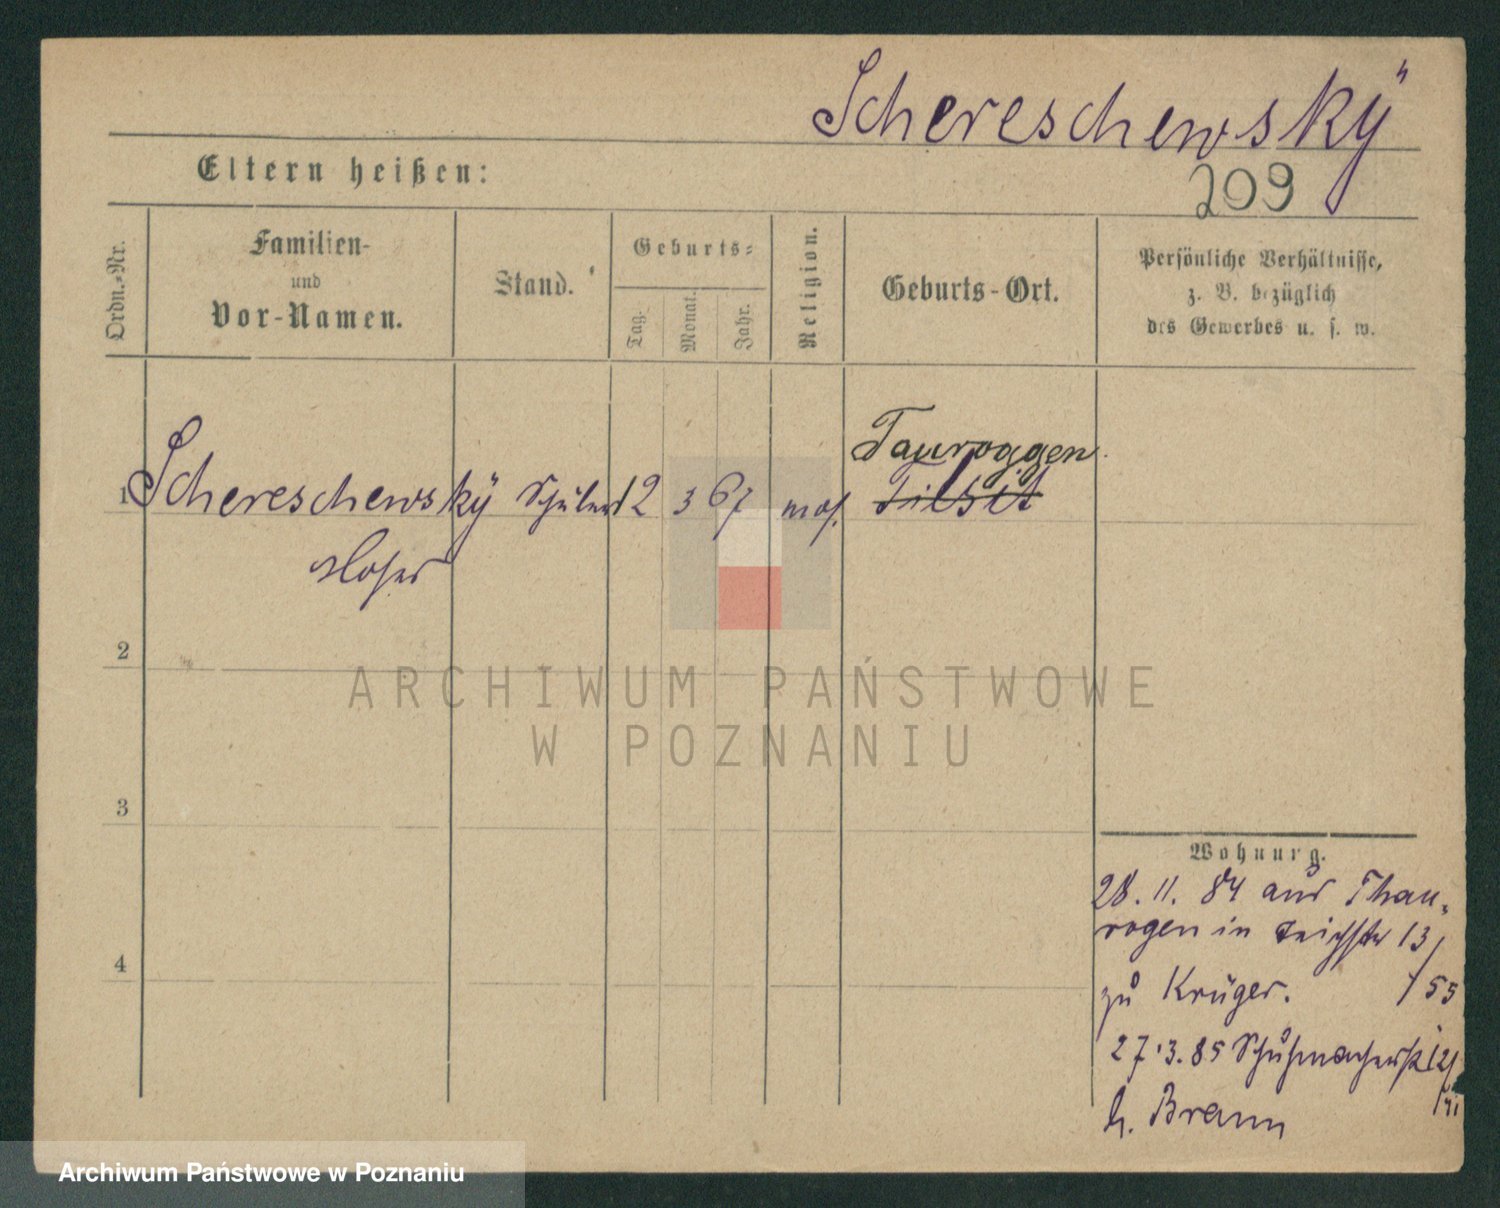 Schereschewskÿ
209
Eltern heißen:
Ordn.-Nr.
Familien-
und
Vor-Namen.
Stand.
Geburts-
Tag.
Monat.
Jahr.
Religion.
Geburts-Ort.
Persönliche Verhältnisse,
z. B. bezüglich
des Gewerbes u. s. w.
Tauroggen
1 Schereschewskÿ Schüler 12 3 67 mos. Tilsit
Moses
2
3
4
Wohnung.
28. 11. 84 aus Thau-
rogen in Teichstr 13/
/55
zu Krüger.
27.3.85 Schuhmacherstr 12/
b. Braun
ARCHIWUM PAŃSTWOWE
W POZNANIU
Archiwum Państwowe w Poznaniu